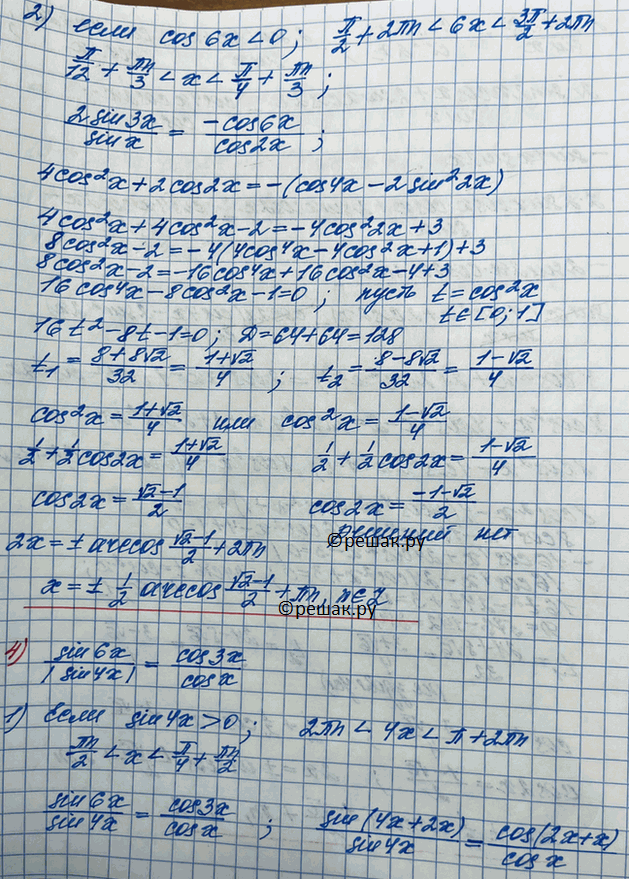 2) если cos6x<0; π/2+2πn<6x<3π/2+2πn
π/12+πn/3<x<π/4+πn/3;
2sin3x/sinx=-cos6x/cos2x;
4cos²x+2cos2x=-(cos4x-2sin²2x)
4cos²x+4cos²x-2=-4cos²2x+3
8cos²x-2=-4(4cos⁴x-4cos²x+1)+3
8cos²x-2=-16cos⁴x+16cos²x-4+3
16cos⁴x-8cos²x-1=0; пусть t=cos²x
t∈[0;1]
16t²-8t-1=0; D=64+64=128
t₁=(8+8√2)/32=(1+√2)/4; t₂=(8-8√2)/32=(1-√2)/4
cos²x=(1+√2)/4 или cos²x=(1-√2)/4
1/2+1/2cos2x=(1+√2)/4 1/2+1/2cos2x=(1-√2)/4
cos2x=(√2-1)/2 cos2x=(-1-√2)/2
решений нет
2x=±arccos(√2-1)/2+2πn ©решак.ру
x=±1/2arccos(√2-1)/2+πn, n∈Z
©решак.ру
4) sin6x/|sin4x|=cos3x/cosx
1) Если sin4x>0; 2πn<4x<π+2πn
πn/2<x<π/4+πn/2
sin6x/sin4x=cos3x/cosx; sin(4x+2x)/sin4x=cos(2x+x)/cosx